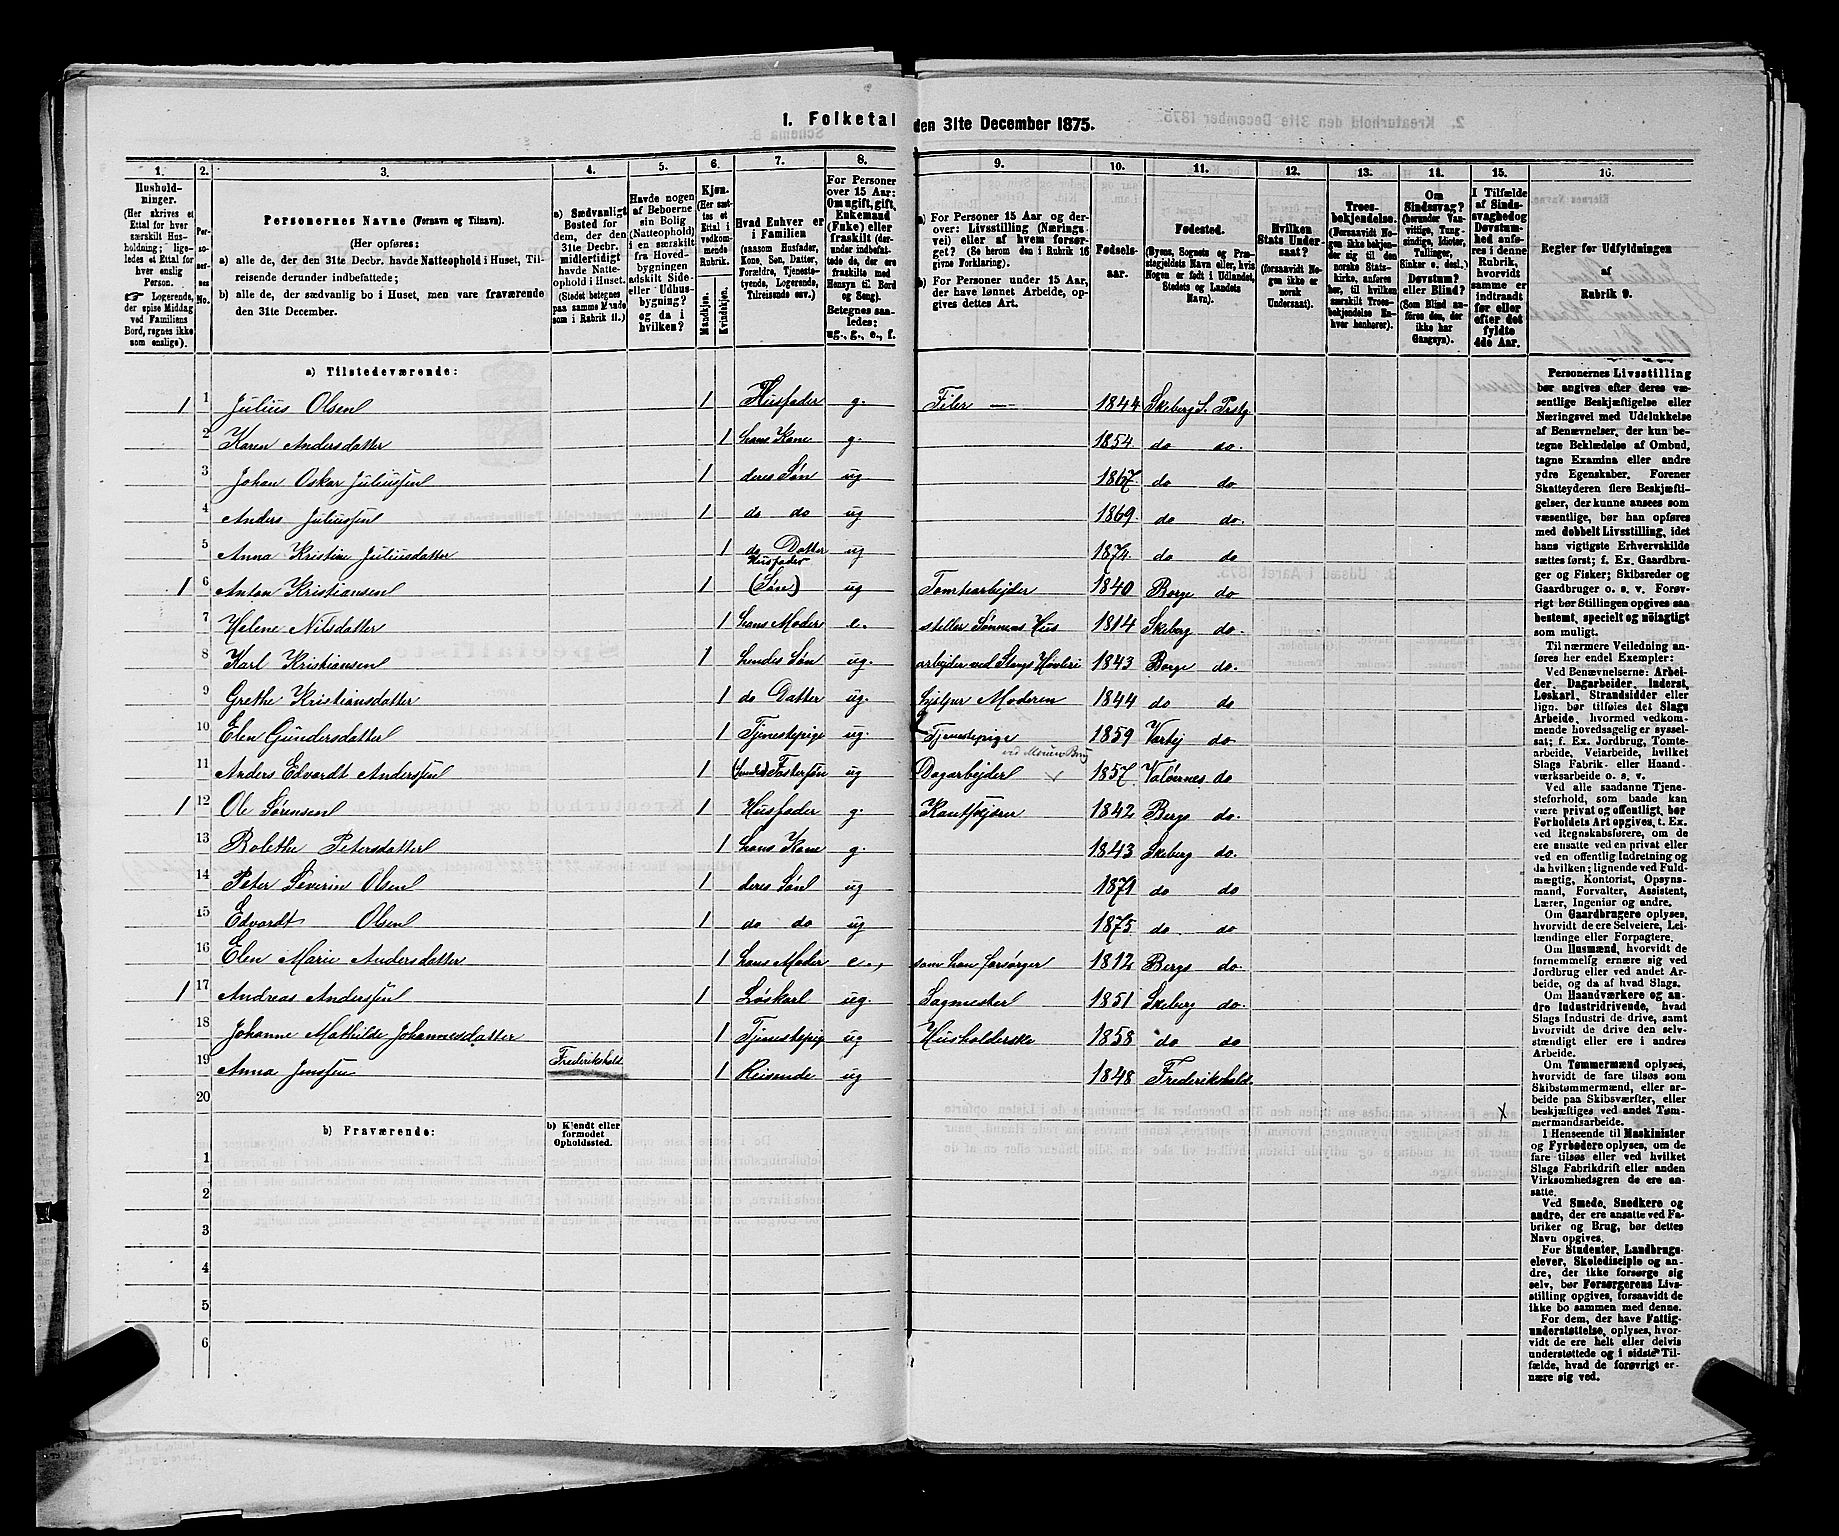 1. Folketal den 31te December 1875.
1. 2. 3. 4. 5. 6. 7. 8. 9. 10. 11. 12. 13. 14. 15. 16.
Hushold-
ninger.
(Her skrives et
Ettal for hver
særskilt Hus-
holdning; lige-
ledes et Ettal for
hver enslig
Person.
☞ Logerende,
der spise Middag
ved Familiens
Bord, regnes ikke
som enslige).
Per-
so-
ner-
nes
No.
Personernes Navne (Fornavn og Tilnavn).
(Her opføres:
a) alle de, der den 31te Decbr. havde Natteophold i Huset, Til-
reisende derunder indbefattede;
b) alle de, der sædvanlig bo i Huset, men vare fraværende
den 31te December.
a) Sædvanligt
Bosted for
dem, der den
31te Decbr.
midlertidigt
havde Natte-
ophold i Huset.
(Stedet betegnes
paa samme Maade
som i Rubrik 11.)
Havde nogen
af Beboerne
sin Bolig
(Natteophold)
i en særskilt
fra Hoved-
bygningen
adskilt Side-
eller Udhus-
bygning?
og da i
hvilken?
Kjøn.
(Her sæt-
tes et
Ettal i
vedkom-
mende
Rubrik.
Mandkjøn.
Kvindekjøn.
Hvad Enhver er
i Familien
(saasom Husfader,
Kone, Søn, Datter,
Forældre, Tjeneste-
tyende, Logerende,
Tilreisende osv.)
For Personer
over 15 Aar:
Om ugift, gift,
Enkemand
(Enke) eller
fraskilt (der-
under indbefat-
tede de, der ere
fraskilte med
Hensyn til Bord
og Seng).
Betegnes saa-
ledes:
ug., g., e., f.
a) For Personer 15 Aar og der-
over: Livsstilling (Nærings-
vei) eller af hvem forsør-
get? (Se herom den i Rubrik 16
givne Forklaring).
b) For Personer under 15 Aar,
der have lønnet Arbeide, op-
gives dettes Art.
Fødsels-
aar.
Fødested.
(Byens, Sognets og Præ-
stegjeldets Navn eller, hvis
Nogen er født i Udlandet,
Stedets og Landets
Navn).
Hvilken
Stats Under-
saat?
(forsaavidt No-
gen ikke er
norsk
Undersaat).
Troes-
bekjendelse.
(Forsaavidt No-
gen ikke bekjen-
der sig til den
norske Stats-
kirke, anføres
her, til hvilken
særskilt Troes-
bekjendelse En-
hver henhører).
Om
Sindssvag?
(herunder Van-
vittige, Tung-
sindige, Idioter,
Tullinger,
Sinker o. desl.)
Døvstum?
eller Blind?
(Som Blind an-
føres den, der
ikke har
Gangsyn).
I Tilfælde
af Sinds-
svaghed og
Døvstum-
hed anfø-
res i denne
Rubrik,
hvorvidt
samme er
indtraadt
før eller
efter det
fyldte
4de Aar.
Regler for Udfyldningen
af
Rubrik 9.
a) Tilstedeværende:
1 1 Julius Olsen 1 Husfader g. Filer — 1844 Skeberg S. Prstg
2 Karen Andersdatter 1 hans Kone g. 1854. do do.
3 Johan Oskar Juliussen 1 deres Søn ug 1867. do do
4 Anders Juliussen 1 do do ug 1869. do do.
5 Anna Kristine Juliusdatter 1 do Datter ug 1874. do do
1 6 Anton Kristiansen 1 Husfader (Søn) ug Tomtearbejder 1840 Borge do
7 Helene Nilsdatter 1 hans Moder e. steller Sønnens Hus 1814 Skeberg do.
8 Karl Kristiansen 1 hendes Søn ug. arbejder ved Slangs Høvleri 1843 Borge do.
9 Grethe Kristiansdatter 1 do Datter ug. hjelper Moderen 1844 do do
10 Elen Gundersdatter 1 Tjenestepige ug. Tjenestepige 1859 Varteig do
11 Anders Edvardt Anderssen 1 (hendes) Fostersøn ug Dagarbejder 1857. Valøernes do
1 12 Ole Sørensen 1 Husfader g. Kantskjører 1842 Bergs do.
13 Bolethe Petersdatter 1 hans Kone g. 1843 Skeberg do.
14 Peter Severin Olsen 1 deres Søn ug 1871 do do
15 Edvardt Olsen 1 do do ug 1875 do. do
16 Elen Marie Andersdatter 1 hans Moder e., som han forsørger 1812 Bergs do
1 17 Andreas Anderssen 1 Løskarl ug. Sagmester 1851 Skeberg do.
18 Johanne Mathilde Johannesdatter 1 Tjenestepig ug Husholderske 1858 do do
19 Anna Jenssen Frederikshald 1 Reisende ug 1848 Frederikshald.
20
b) Fraværende:
b) Kjendt eller
formodet
Opholdssted.
1
2
3
4
5
6
Personernes Livsstilling
bør angives efter deres væ-
sentlige Beskjæftigelse eller
Næringsvei med Udelukkelse
af Benævnelser, der kun be-
tegne Beklædelse af Ombud,
tagne Examina eller andre
ydre Egenskaber. Forener
Skatteyderen flere Beskjæfti-
gelser, der kunne ansees som
væsentlige, bør han opføres
med dobbelt Livsstilling, idet
hans vigtigste Erhvervskilde
sættes først; f. Ex. Gaardbru-
ger og Fisker; Skibsreder og
Gaardbruger o. s. v. Forøv-
rigt bør Stillingen opgives saa
bestemt, specielt og nøiagtigt
som muligt.
Til nærmere Veiledning an-
føres her endel Exempler:
Ved Benævnelserne: Arbei-
der, Dagarbeider, Inderst,
Løskarl, Strandsidder eller
lign. bør tilføies det Slags
Arbeide, hvormed vedkom-
mende hovedsagelig er syssel-
sat; f. Ex. Jordbrug, Tomte-
arbeide, Veiarbeide, hvilket
Slags Fabrik- eller Haand-
værksarbeide o. s. v.
Ved alle saadanne Tjene-
steforhold, som baade kan
være privat og offentligt, bør
Forholdets Art opgives, t. Ex.
ved Regnskabsførere, om de
ere ansatte ved en privat eller
ved en offentlig Indretning og
da hvilken; lignende ved Fuld-
mægtig, Kontorist, Opsyns-
mand, Forvalter, Assistent,
Lærer, Ingeniør og andre.
Om Gaardbrugere oplyses,
hvorvidt de ere Selveiere, Lei-
lændinge eller Forpagtere.
Om Husmænd, hvorvidt de
fornemmelig ernære sig ved
Jordbrug eller ved andet Ar-
beide, og da af hvad Slags.
Om Haandværkere og an-
dre Industridrivende, hvad
Slags Industri de drive, samt
hvorvidt de drive den selv-
stændigt eller ere i andres
Arbeide.
Om Tømmermænd oplyses,
hvorvidt de fare tilsøs som
Skibstømmermænd, eller ar-
beide paa Skibsværfter, eller
beskjæftiges ved andet Tøm-
mermandsarbeide.
I Henseende til Maskinister
og Fyrbødere oplyses, om de
fare tilsøs eller ved hvilket
Slags Fabrikdrift eller anden
Virksomhedsgren de ere an-
satte.
Ved Smede, Snedkere og
andre, der ere ansatte ved Fa-
briker og Brug, bør dettes
Navn opgives.
For Studenter, Landbrugs-
elever, Skoledisciple og an-
dre, der ikke forsørge sig
selv, bør Forsørgerens Livs-
stilling opgives, forsaavidt de
ikke bo sammen med denne.
For dem, der have Fattig-
understøttelse, oplyses, hvor-
vidt de ere helt eller delvis
understøttede og i sidste Til-
fælde, hvad de forøvrigt er-
nære sig ved.